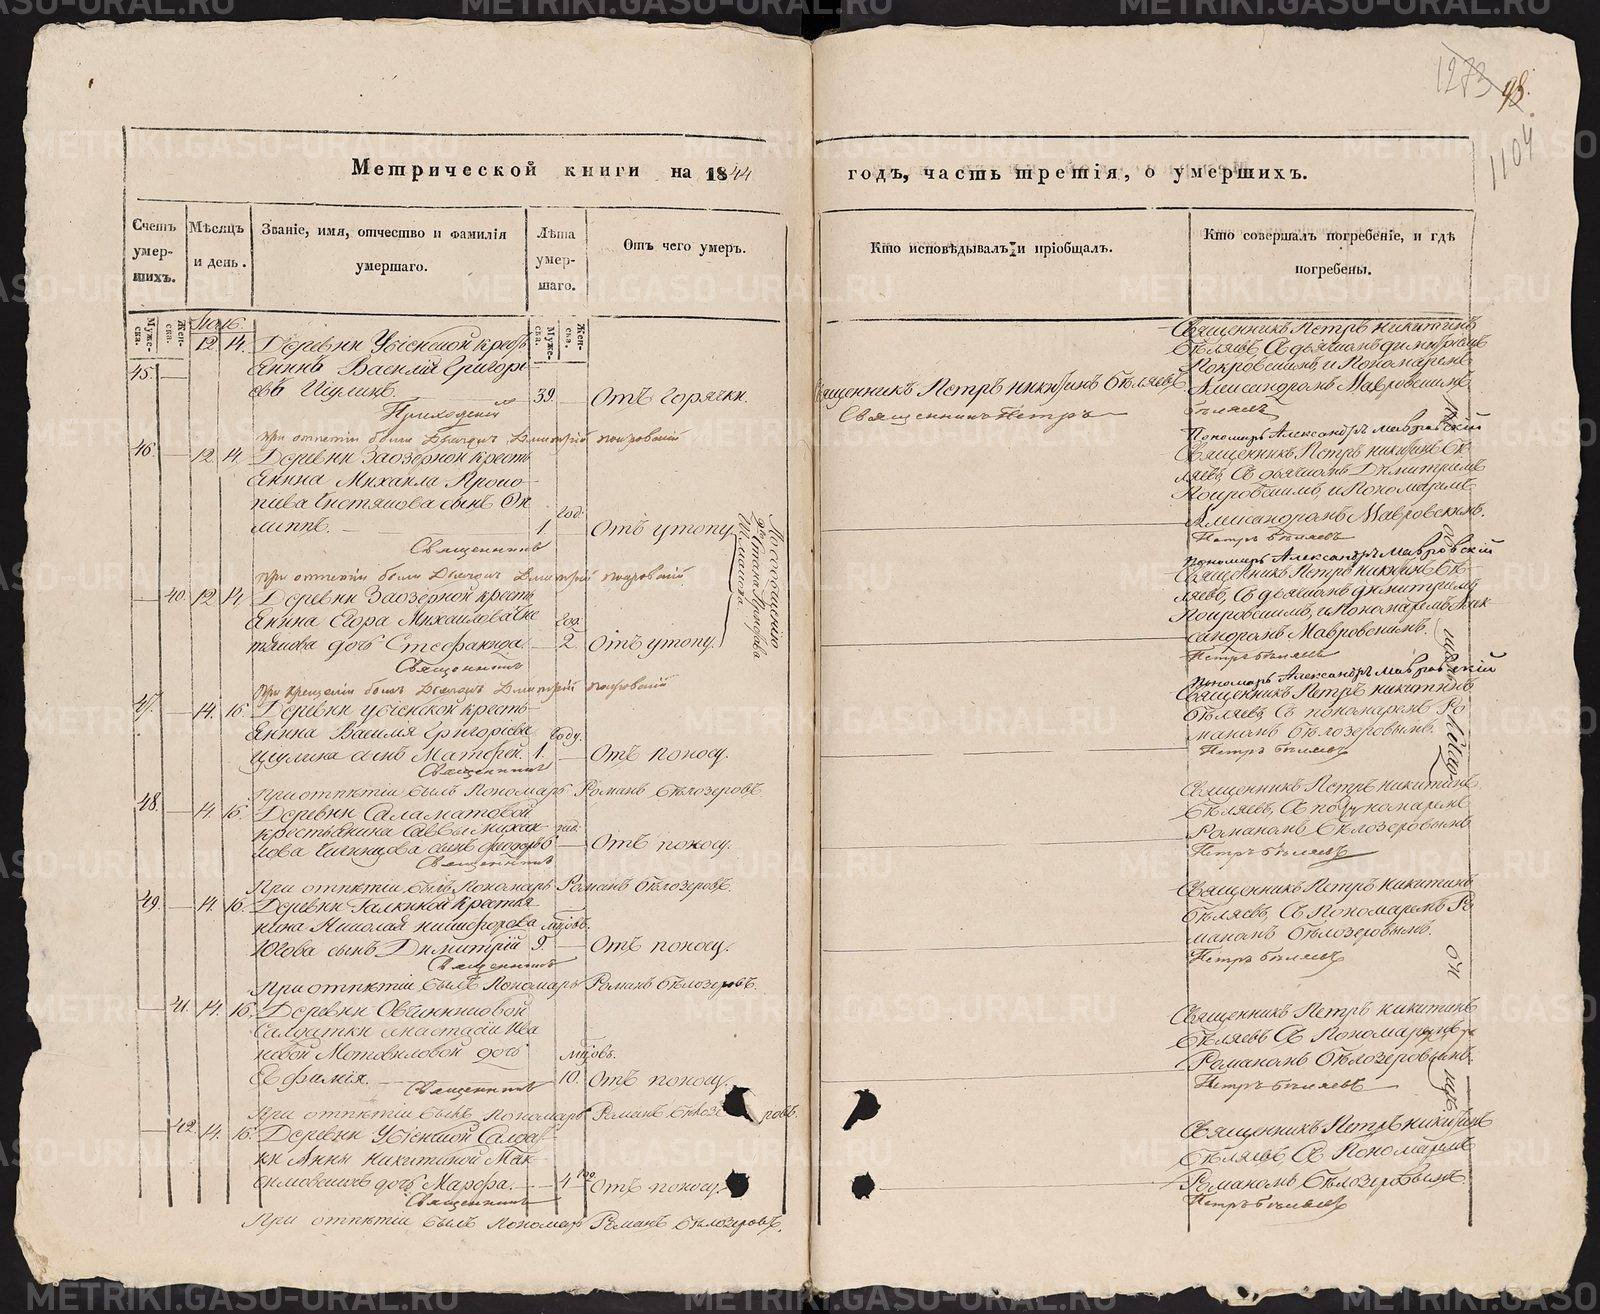 1273 98.
1104
Метрической книги на 1844
годъ, часть третія, о умершихъ.
Счетъ умер-шихъ.
Мѣсяцъ и день.
Званіе, имя, отчество и фамилія умершаго.
Лѣта умер-шаго.
Отъ чего умеръ.
Кто исповѣдывалъ и пріобщалъ.
Кто совершалъ погребеніе, и гдѣ погребены.
Муже-ска.
Жен-ска.
Муже-ска.
Жен-ска.
45. 12. 14. Деревни
Василій Григорь
евъ 39. Отъ горячки.
Священникъ Петръ Никитинъ Бѣляевъ
Священникъ Петръ
Священникъ Петръ Никитинъ
Бѣляевъ, съ дьячкомъ Димитріемъ
Покровскимъ, и Пономаремъ
Александромъ Мавровскимъ
Бѣляевъ
Приходскій
При отпетіи былъ Дьячокъ Димитрій Покровскій
Пономарь Александръ Мавровскій
46. 12. 14. Деревни Заозерной кресть
янина Михаила Проко
сынъ Фи
липпъ. год. 1 Отъ утопу
Священникъ Петръ Никитинъ Бѣ
ляевъ, съ дьячкомъ Димитріемъ
Покровскимъ, и Пономаремъ
Александромъ Мавровскимъ.
Священникъ
Петръ Бѣляевъ
При отпетіи былъ Дьячокъ Димитрій Покровскій
Пономарь Александръ Мавровскій
40. 12. 14. Деревни Заозерной кресть
янина Егора Михайлова
дочь Стефанида. год. 2. Отъ утопу.
По сообщенію
Священникъ Петръ Никитинъ Бѣ
ляевъ, съ дьячкомъ Димитріемъ
Покровскимъ, и Пономаремъ Алек
сандромъ Мавровскимъ.
Священникъ
Петръ Бѣляевъ
При крещеніи былъ Дьячокъ Димитрій Покровскій
Пономарь Александръ Мавровскій
47. 14. 16. Деревни кресть
янина Василья Григорьева
сынъ Матфей. году. 1. Отъ поносу.
Священникъ Петръ Никитинъ
Бѣляевъ, съ пономаремъ Ро
маномъ Бѣлозеровымъ.
Священникъ
Петръ Бѣляевъ
При отпѣтіи былъ Пономарь Романъ Бѣлозеровъ
48. 14. 16. Деревни Саламатовой
крестьянина Саввы Михай
лова сынъ Ѳеодоръ Отъ поносу.
Священникъ Петръ Никитинъ
Бѣляевъ, съ пономаремъ
Романомъ Бѣлозеровымъ
Священникъ
Петръ Бѣляевъ
При отпѣтіи былъ Пономарь Романъ Бѣлозеровъ.
49. 14. 16. Деревни Галкиной крестья
нина Николая Никифорова мцовъ.
Югова сынъ Димитрій 9. Отъ поносу.
Священникъ Петръ Никитинъ
Бѣляевъ, съ Пономаремъ Ро
маномъ Бѣлозеровымъ.
Священникъ
Петръ Бѣляевъ
При отпѣтіи былъ Пономарь Романъ Бѣлозеровъ.
41. 14. 16. Деревни Овчинниковой
Солдатки Анастасіи Ива
новой Мотовиловой дочь мцовъ.
Ефимія. 10. Отъ поносу.
Священникъ Петръ Никитинъ
Бѣляевъ съ Пономаремъ
Романомъ Бѣлозеровымъ.
Священникъ
Петръ Бѣляевъ
При отпѣтіи былъ Пономарь Романъ Бѣлозеровъ.
42. 14. 16. Деревни Солдат
ки Анны Никитиной Мак
симовскихъ дочь Марфа. 4 Отъ поносу.
Священникъ Петръ Никитинъ
Бѣляевъ, съ Пономаремъ
Романомъ Бѣлозеровымъ
Священникъ
Петръ Бѣляевъ
При отпѣтіи былъ Пономарь Романъ Бѣлозеровъ.
METRIKI.GASO-URAL.RU